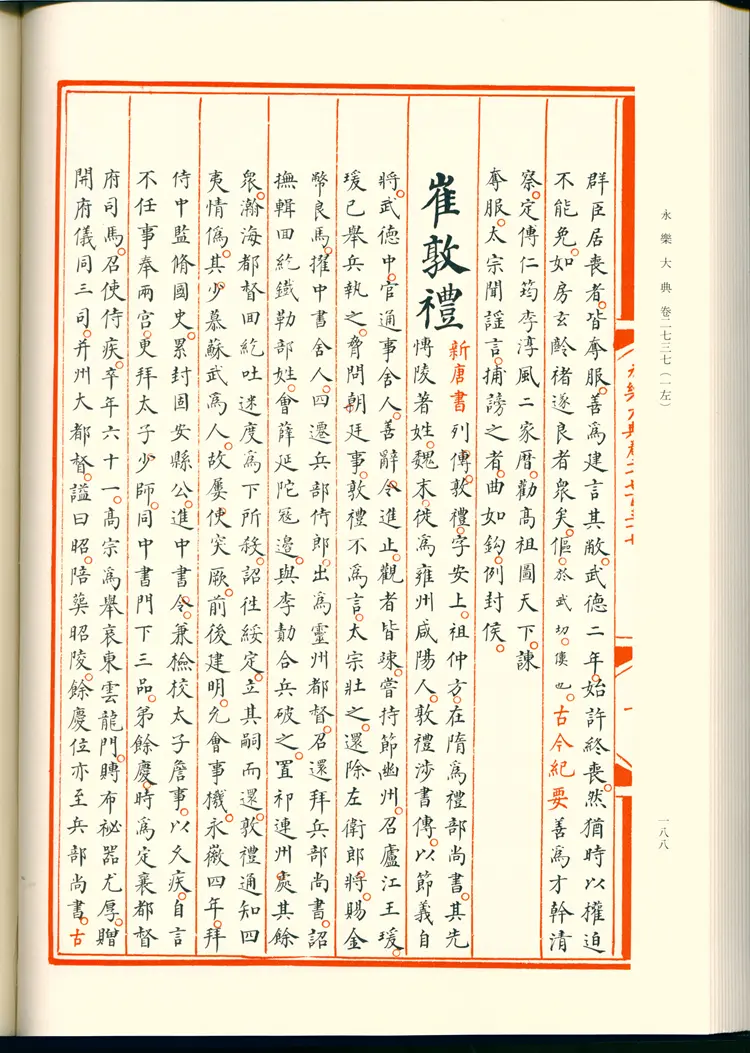 永樂大典 卷二七三七(一左)
一八八
群臣居喪者。皆奪服。善爲建言其敝。武德二年。始許終喪。然猶時以權迫
不能免。如房玄齡褚遂良者衆矣。傴。於武切。僂也。古今紀要善爲才幹清
察。定傅仁筠李淳風二家曆。勸高祖圖天下。諫
奪服。太宗聞謡言。捕謗之者。曲如鈎。例封侯。
崔敦禮
新唐書列傳。敦禮。字安上。祖仲方。在隋爲禮部尚書。其先
博陵著姓。魏末。徙爲雍州咸陽人。敦禮涉書傳。以節義自
將。武德中。官通事舍人。善辭令進止。觀者皆竦。嘗持節幽州。召廬江王瑗。
瑗已舉兵執之。脅問朝廷事。敦禮不爲言。太宗壯之。還除左衛郎將。賜金
幣良馬。擢中書舍人。四遷兵部侍郎。出爲靈州都督。召還拜兵部尚書。詔
撫輯回紇鐵勒部姓。會薛延陀寇邊。與李勣合兵破之。置祁連州。處其餘
衆。瀚海都督回紇吐迷度爲下所殺。詔往綏定。立其嗣而還。敦禮通知四
夷情僞。其少慕蘇武爲人。故屢使突厥。前後建明。允會事機。永徽四年。拜
侍中監脩國史。累封固安縣公。進中書令。兼檢校太子詹事。以久疾。自言
不任事奉兩宫。更拜太子少師。同中書門下三品。弟餘慶。時爲定襄都督
府司馬。召使侍疾。卒年六十一。高宗爲舉哀東雲龍門。賻布祕器尤厚。贈
開府儀同三司。并州大都督。謚曰昭。陪葬昭陵。餘慶位亦至兵部尚書。古